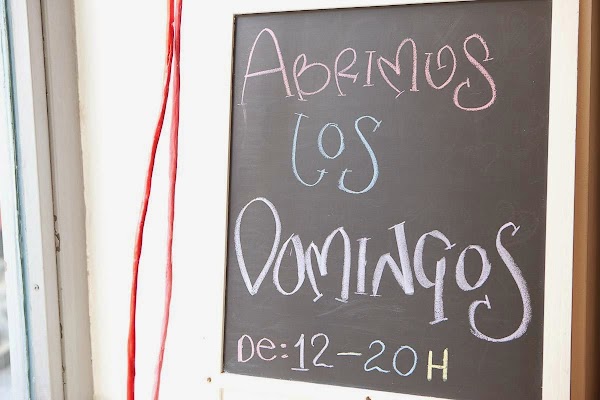 ABRIMOS
LOS
DOMINGOS
De: 12-20H